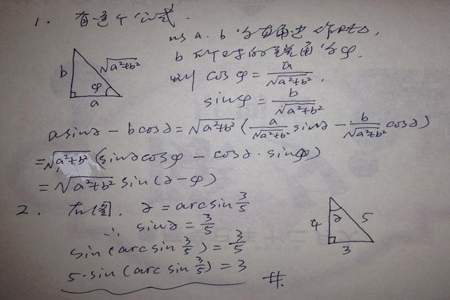 1. 有这个公式.
以 a. b 为直角边作Rt△,
b 所对的锐角为φ.
则 cosφ = a/√a²+b²,
sinφ = b/√a²+b²
b √a²+b² φ a
asin∂ - bcos∂ = √a²+b² (a/√a²+b² sin∂ - b/√a²+b² cos∂)
= √a²+b² (sin∂cosφ - cos∂·sinφ)
= √a²+b² sin(∂-φ)
2. 如图. ∂ = arcsin 3/5
∴ sin∂ = 3/5
sin(arcsin 3/5) = 3/5
5·sin(arcsin 3/5) = 3 #.
4 ∂ 5
3